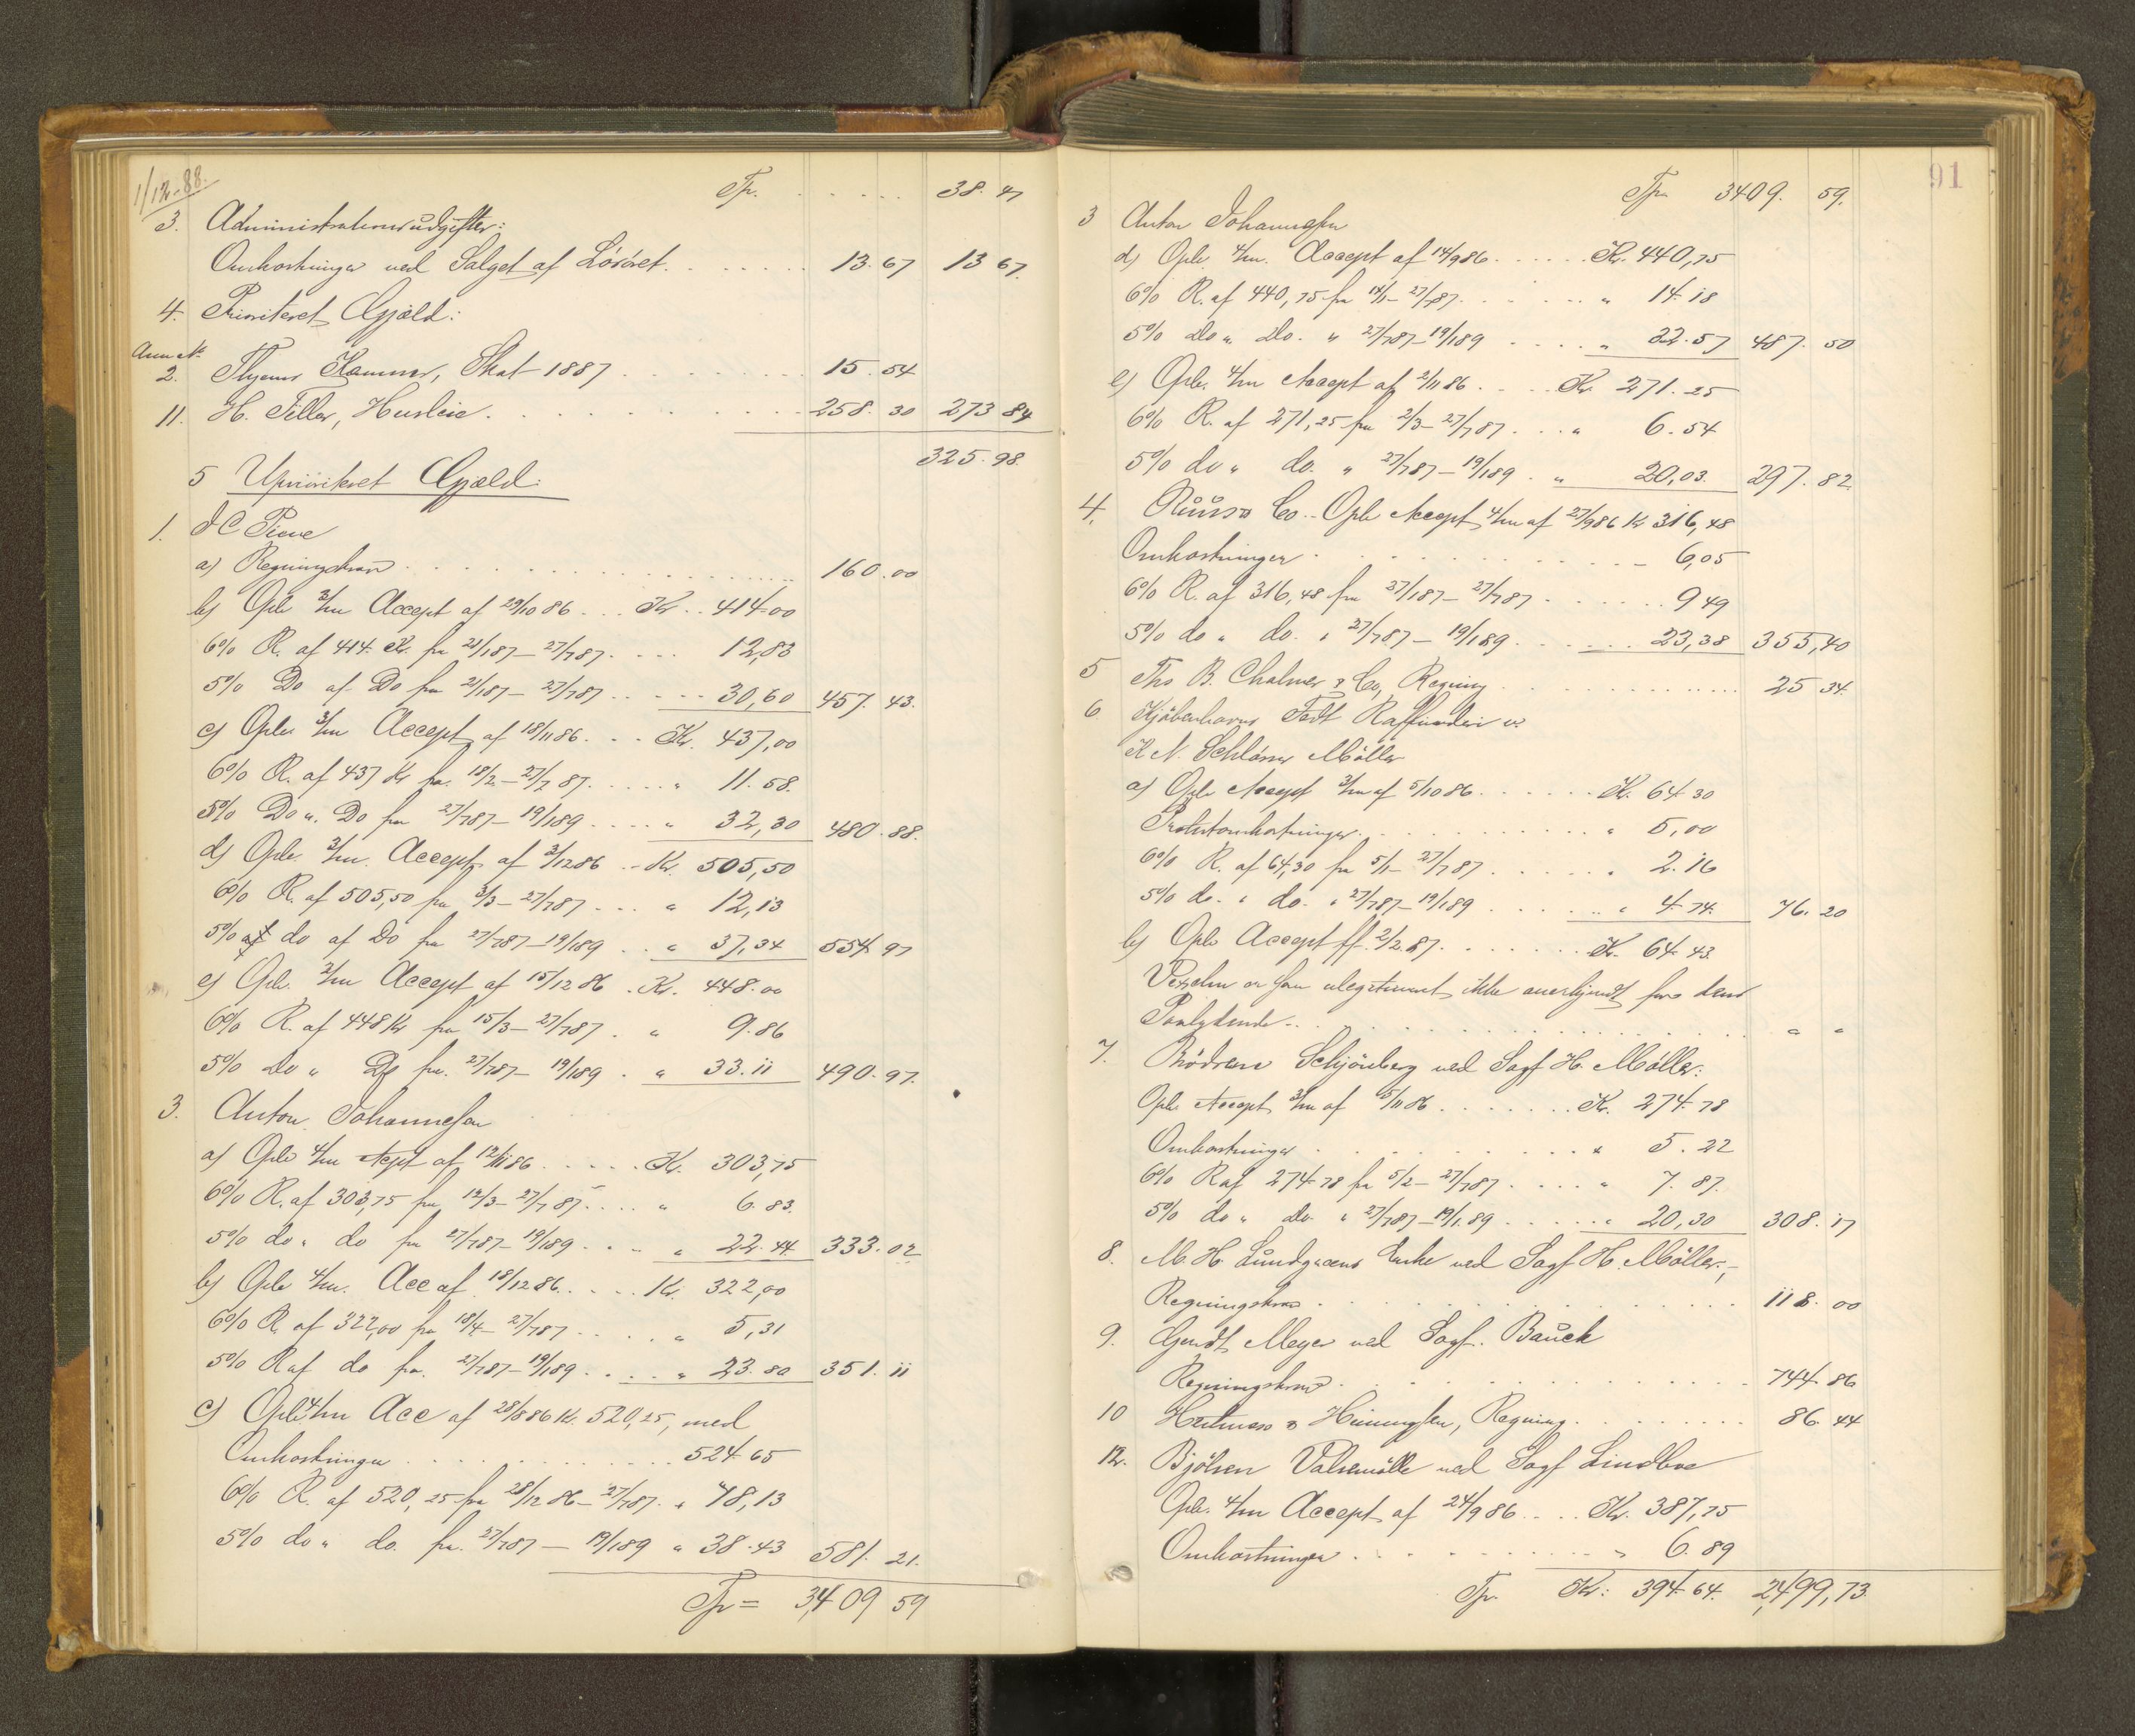 1/12-88.
Tr. . . . . . 38. 47
3. Administrationsudgifter:
Omkostninger ved Salget af Lösöret. . . . . . . 13. 67 13 67.
4. Prioriteret Gjæld:
Anm. No
2. Byens Kæmner, Skat 1887 . . . . . . . 15. 54
11. H. Tiller, Husleie. . . . . . . . . 258. 30 273 84
325. 98.
5 Uprioriteret Gjæld:
1. J C Piene
a) Regningskrav . . . . . . . . . 160. 00
b) Opr 3/m Accept af 29/10 86 . . . Kr. . 414. 00
6% R. af 414. Kr. fra 21/1 87 – 27/7 87. . . . 12,83
5% Do af Do fra 21/1 87 – 27/7 87 . . . . . 30,60 457. 43.
c) Opr 3/m Accept af 18/11 86. . . Kr. 437,00
6% R. af 437 Kr fra 18/2 – 27/7 87. . . . . " 11. 58.
5% Do ". Do fra 27/7 87 – 19/1 89 . . . . " 32,30 480. 88.
d) Opr. 3/m. Accept af 3/12 86 . – Kr. 505,50
6% R. af 505,50 fra 3/3 – 27/7 87 . . . " 12,13
5% af do af Do fra 27/7 87 – 19/1 89 . . " 37,34 554. 97
e) Opr. 3/m Accept af 15/12 86 . Kr. 448. 00
6% R. af 448 Kr fra 15/3 – 27/7 87 . " 9. 86
5% Do " Do fra. 27/7 87 – 19/1 89 . " 33. 11 490. 97.
3. Anton Johannesen
a) Opr 4/m Acpt af 12/11 86 . . . . . Kr. 303,75
6% R. af 303,75 fra 12/3 – 27/7 87. . . . " 6. 83.
5% do " do fra 27/7 87 – 19/1 89 . . . " 22. 44. 333. 02
b) Opr 4/m. Acc af 18/12 86. . . . . Kr. 322,00
6% R. af 322,00 fra 18/4 – 27/7 87 . . . . . " 5,31
5% R af do fra. 27/7 87 – 19/1 89 . . . . " 23. 80 351. 11
c) Opr 4/m Acc af 28/8 86 Kr. 520,25, med
Omkostninger . . . . . . . . . 524. 65
6% R. af 520,25 fra 28/12 86 – 27/7 87. " 18,13
5% do " do. fra. 27/7 87 – 19/1 89 " 38. 43 581. 21.
Tr = 3,409 59
91
Tr. 3409. 59.
3 Anton Johannesen
d) Opr. 4/m. Accept af 14/9 86 . . . . . Kr. 440,75
6% R. af 440,75 fra 14/1 – 27/7 87. . . . . . . " 14. 18
5% do " do. " 27/7 87 – 19/1 89 . . . . . " 32. 57 487. 50
e) Opr. 4/m Accept af 2/11 86 . . . . Kr 271. 25
6% R. af 271,25 fra 2/3 – 27/7 87 . . . " 6. 54
5% do " do. " 27/7 87 – 19/1 89 . " 20,03. 297. 82
4. Ruus & Co. – Opr Accept 4/m af 27/9 86 Kr 316,48
Omkostninger . . . . . . . . . . 6,05
6% R. af 316,48 fra 27/1 87 – 27/7 87 . . . . . . 9 49
5% do " do. " 27/7 87 – 19/1 89. . . . . . 23,38 355,40
5 Ths B. Chalmer & Co, Regning . . . . . . . . 25 34.
6 Kjöbenhavns Fedt Raffinderi v.
K N. Schlösser Möller
a) Opr Accept 3/m af 5/10 86 . . . . . . Kr. 64. 30
Protestomkostninger. . . . . . . . . . " 5,00
6% R. af 64,30 fra 5/1 – 27/7 87 . . . . . . " 2. 16
5% do. " do. " 27/7 87 – 19/1 89 . . . . . . " 4. 74. 76. 20
b) Opr Accept ff. 2/2 87. . . . . . . Kr. 64. 43.
Vexelen er som ulegitimeret ikke anerkjendt fors dens
Paalydende . . . . . . . . . . . . . " "
7. Brödrene Schjönberg ved Sagf H. Möller:
Opr Accept 3/m af 5/11 86 . . . . . . . Kr. 274. 78
Omkostninger . . . . . . . . . . " 5. 22
6% R af 274. 78 fra 5/2 – 27/7 87 . . . . " 7. 87.
5% do " do " 27/7 87 – 19/1. 89 . . . . . " 20,30 308. 17
8. M. H. Lundgreens Enke ved Sagf H. Möller. –,
Regningskrav . . . . . . . . . . . . . . 118. 00
9. Gendt Meyer ved Sagf. Bauck
Regningskrav . . . . . . . . . . . . . 744. 86
10 & Henningsen, Regning . . . . . . . . 86. 44
12. Bjölsen Valsemölle ved Sagf Lindboe
Opr. 4/m Accept af 24/9 86 . . . . Kr. 387,75
Omkostninger . . . . . . . . . . " 6. 89
Tr. Kr: 394. 64. 2,499,73.